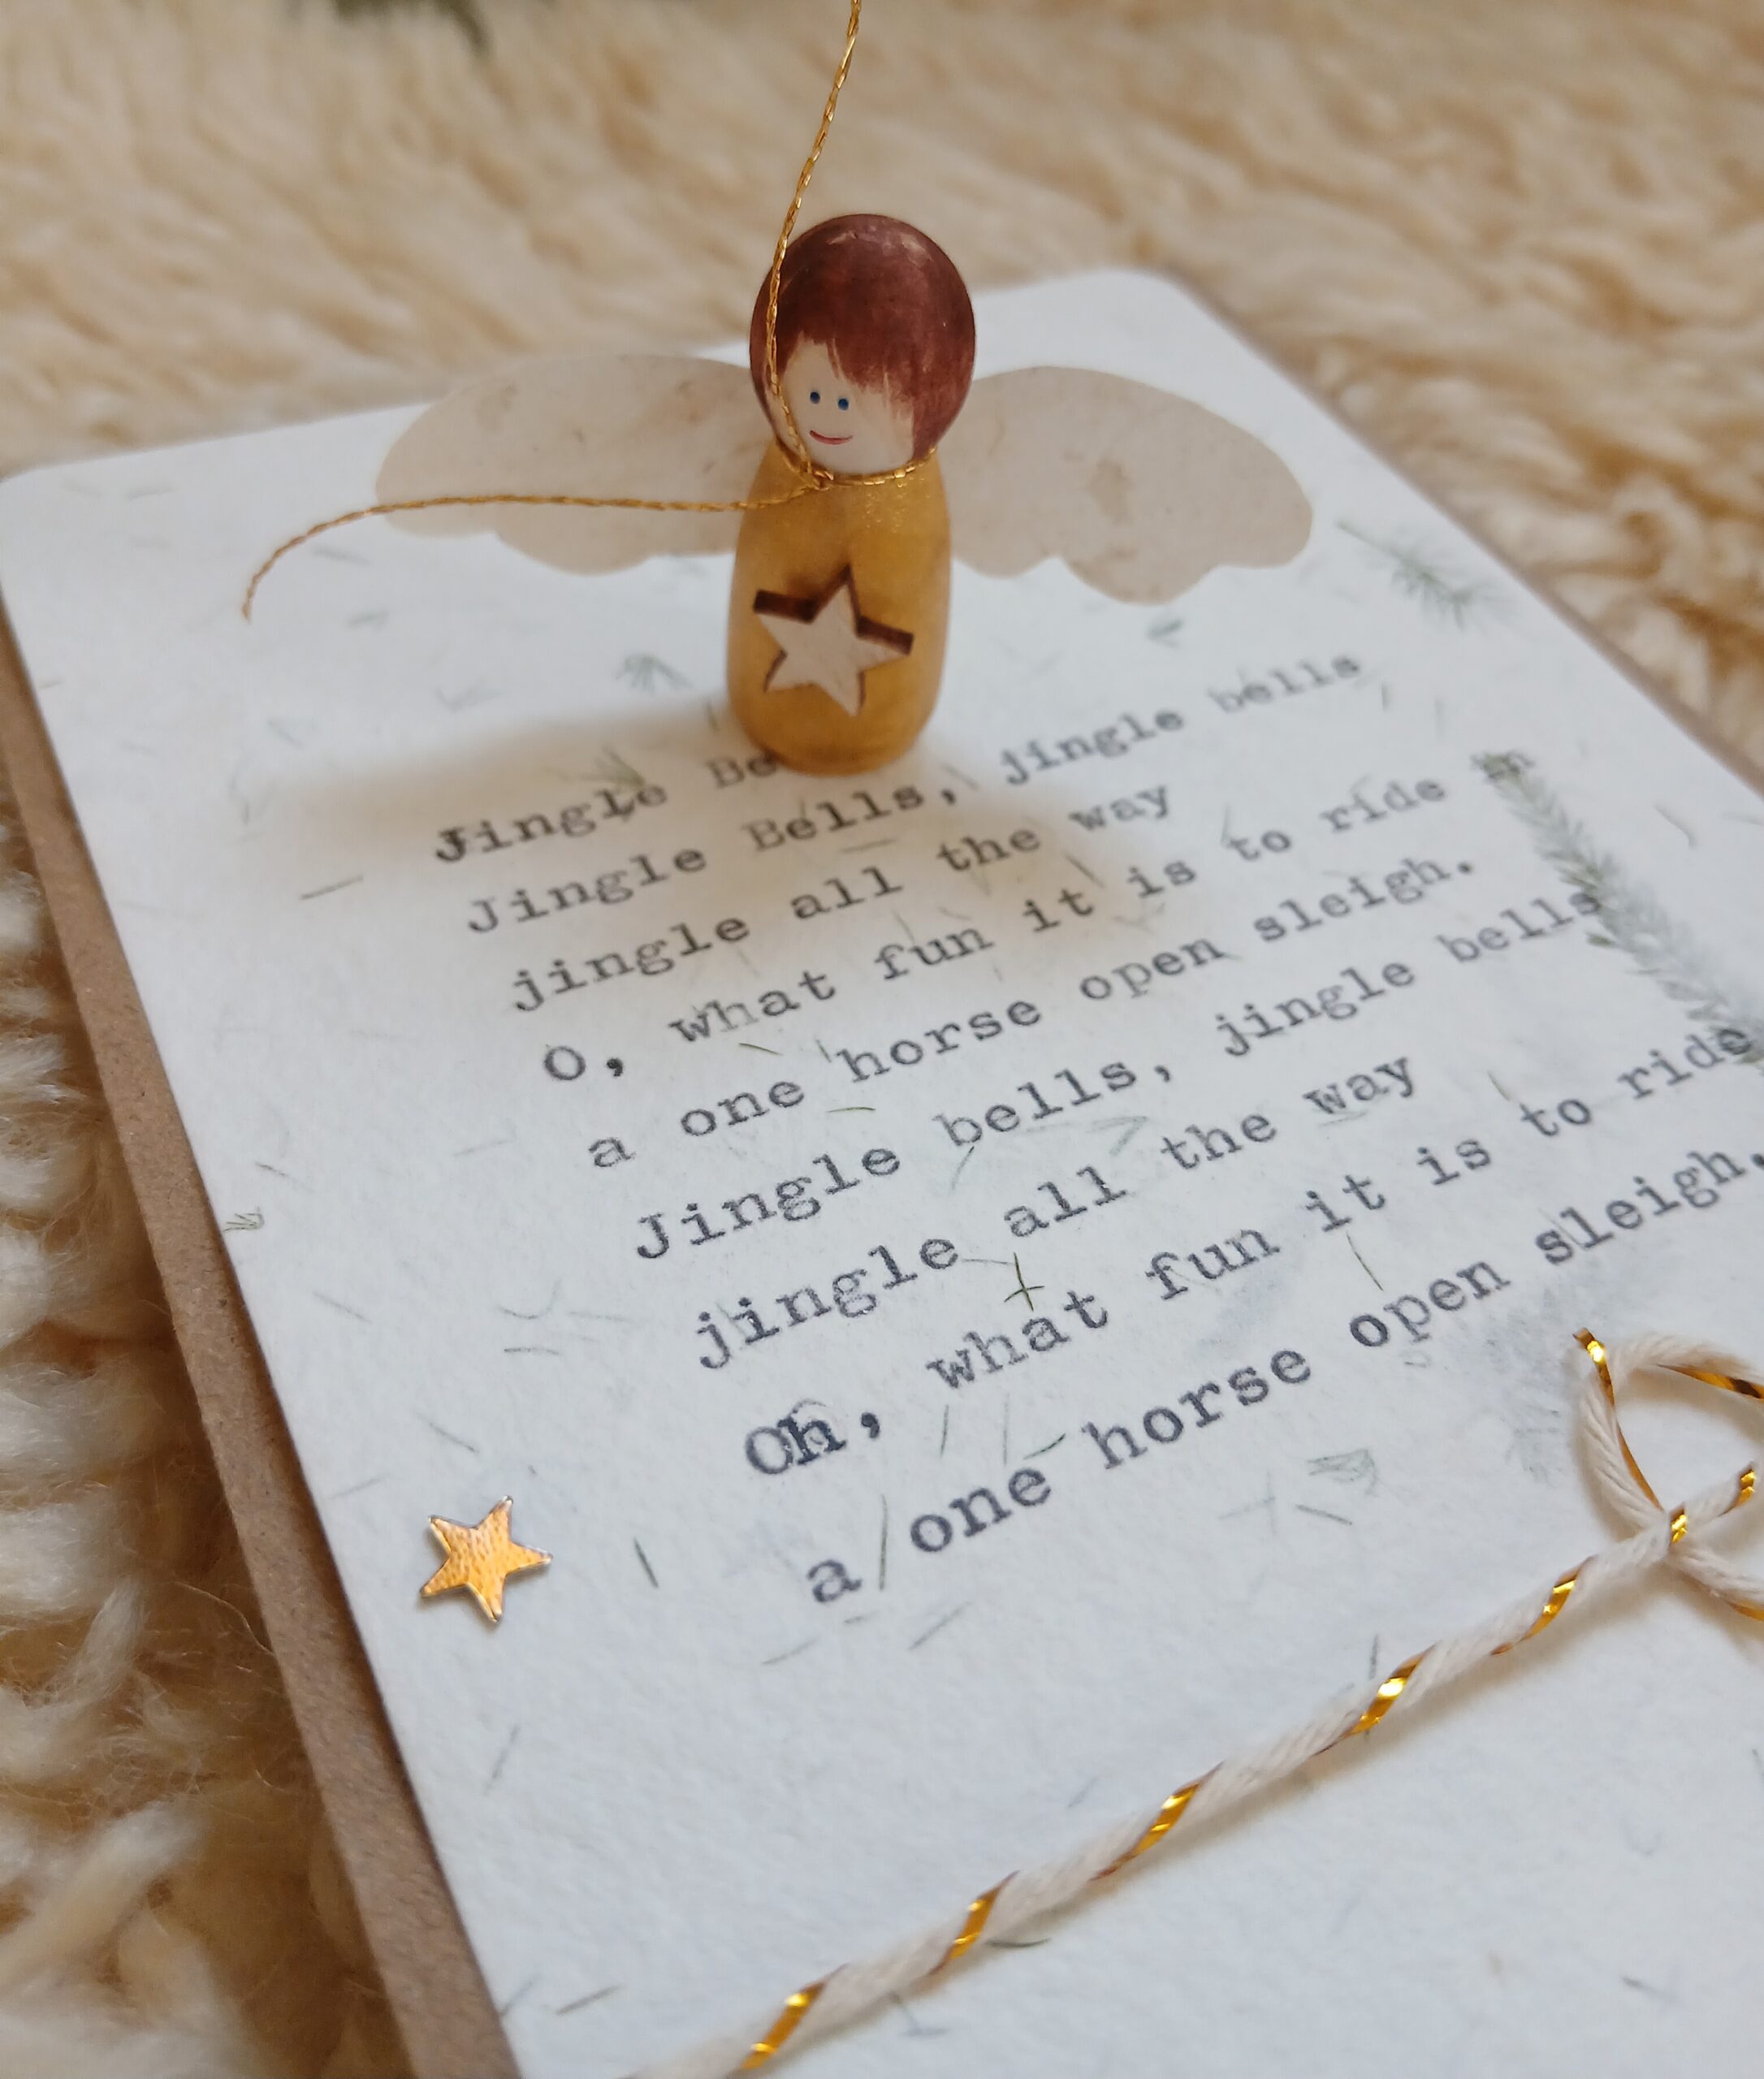 Jingle Be
Jingle Bells, jingle bells
jingle all the way
O, what fun it is to ride in
a one horse open sleigh.
Jingle bells, jingle bells
jingle all the way
Oh, what fun it is to ride
a one horse open sleigh.